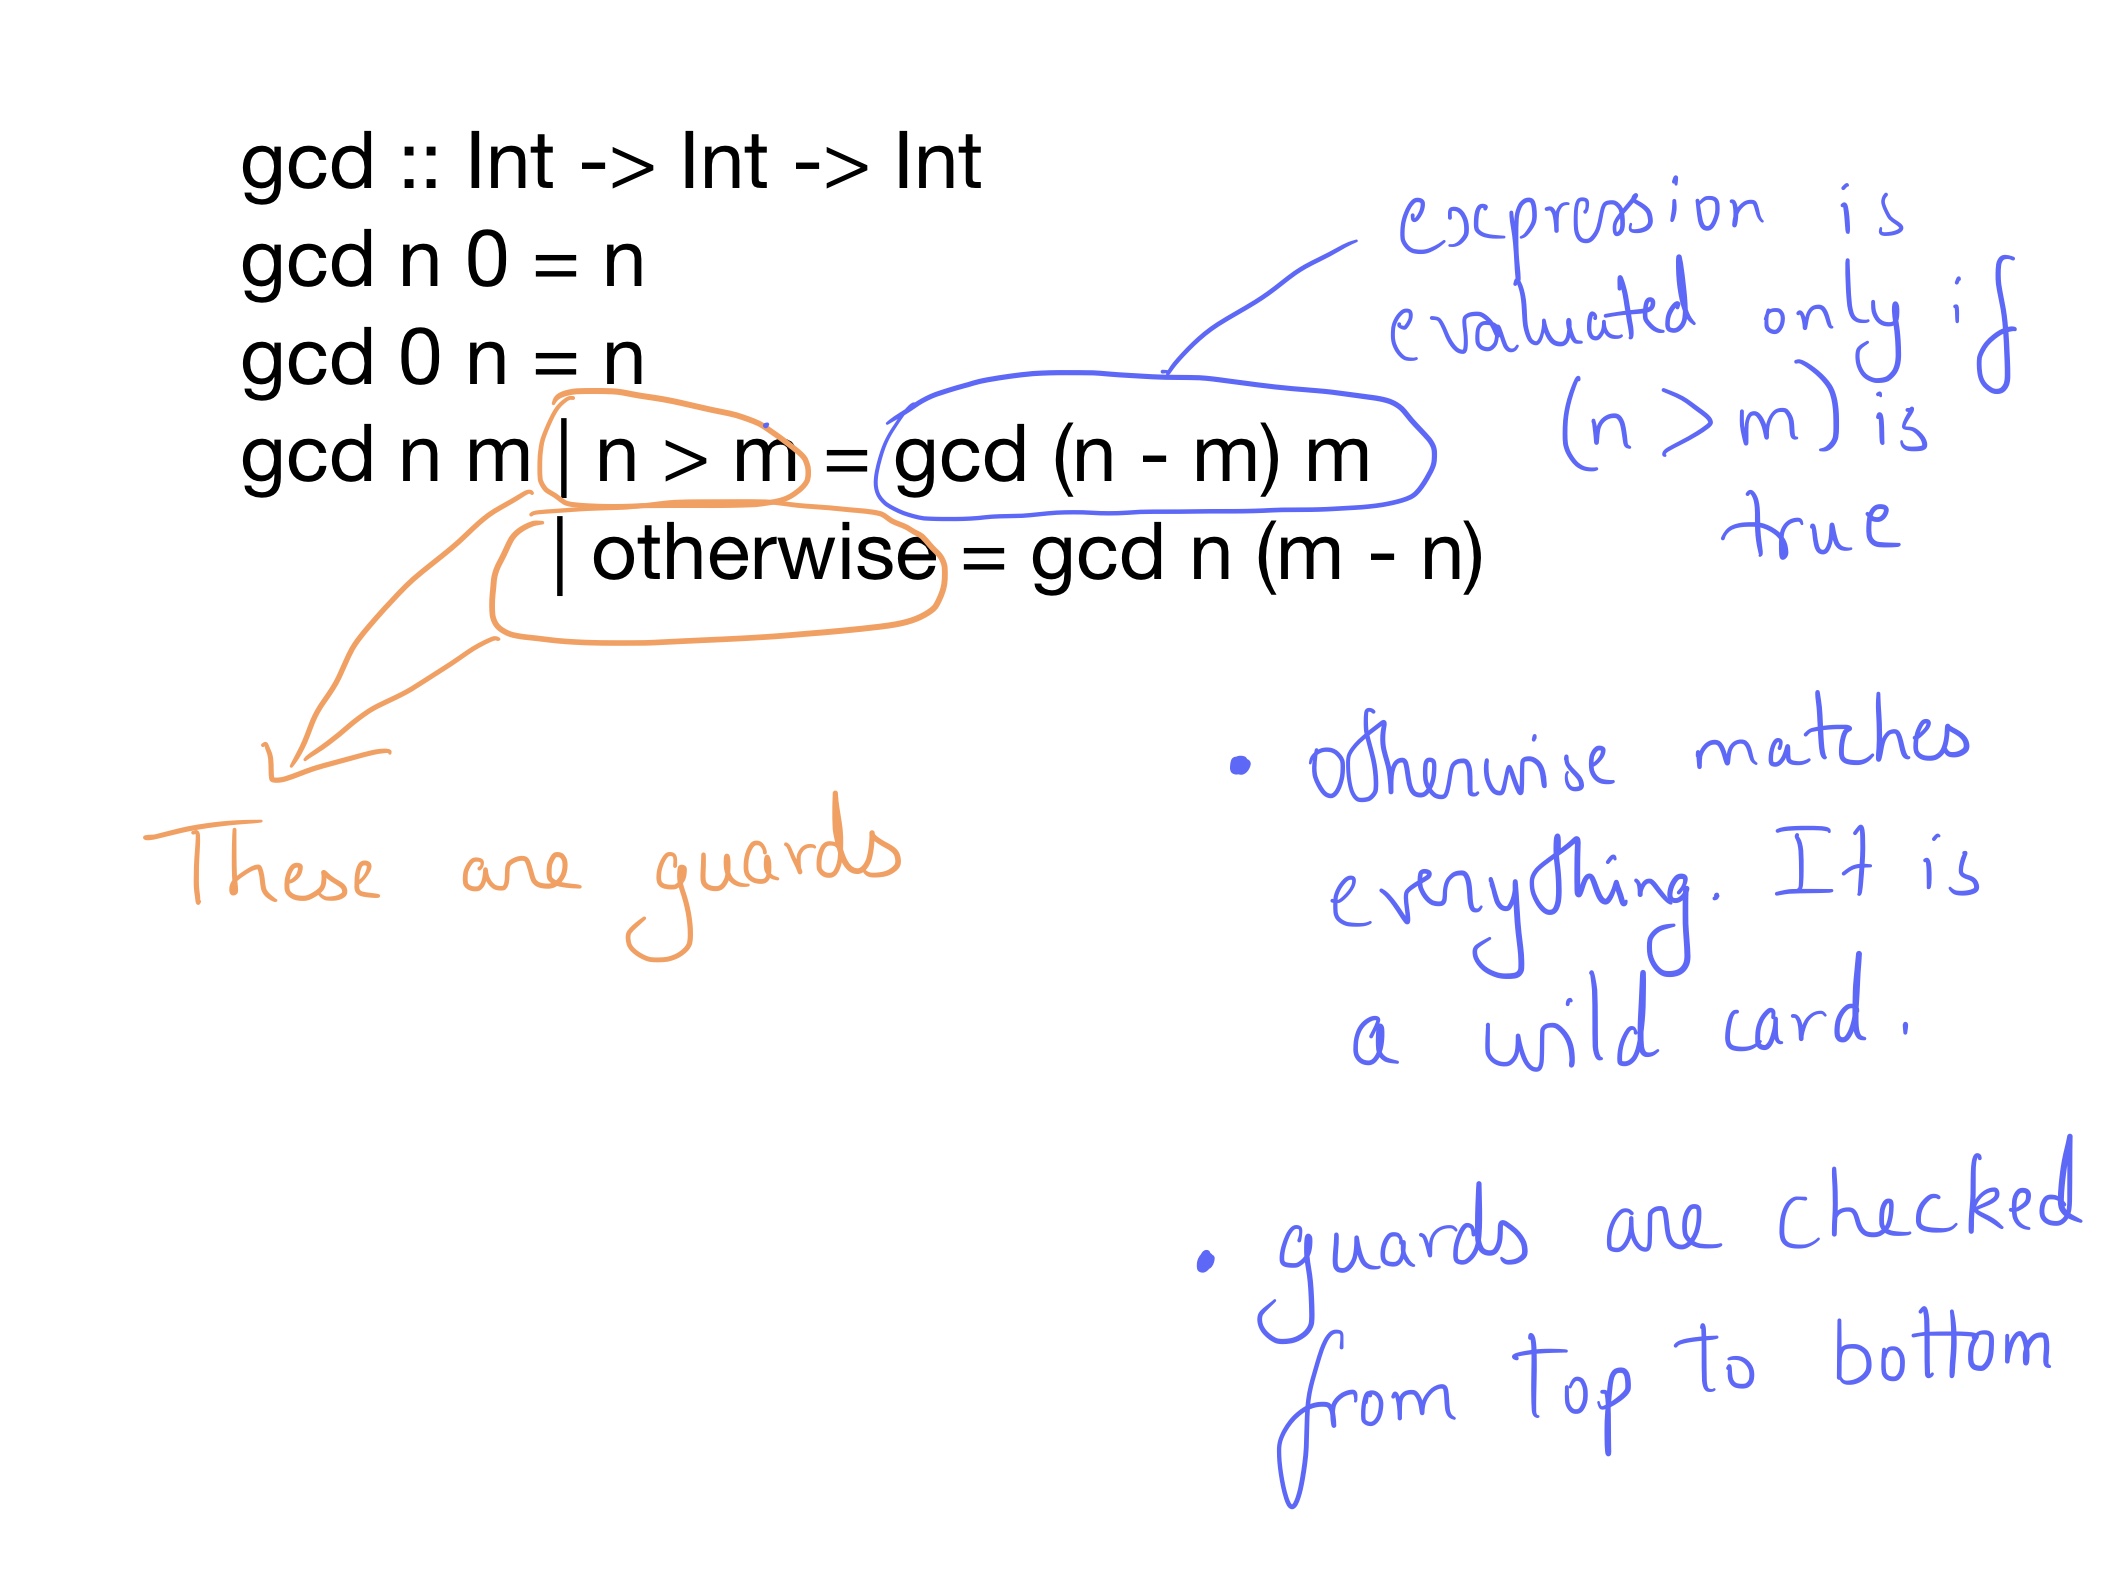 gcd :: Int -> Int -> Int
gcd n 0 = n
gcd 0 n = n
gcd n m | n > m = gcd (n - m) m
| otherwise = gcd n (m - n)
expression is
evaluated only if
(n > m) is
true
These are guards
• otherwise matches
everything. It is
a wild card.
• guards are checked
from top to bottom